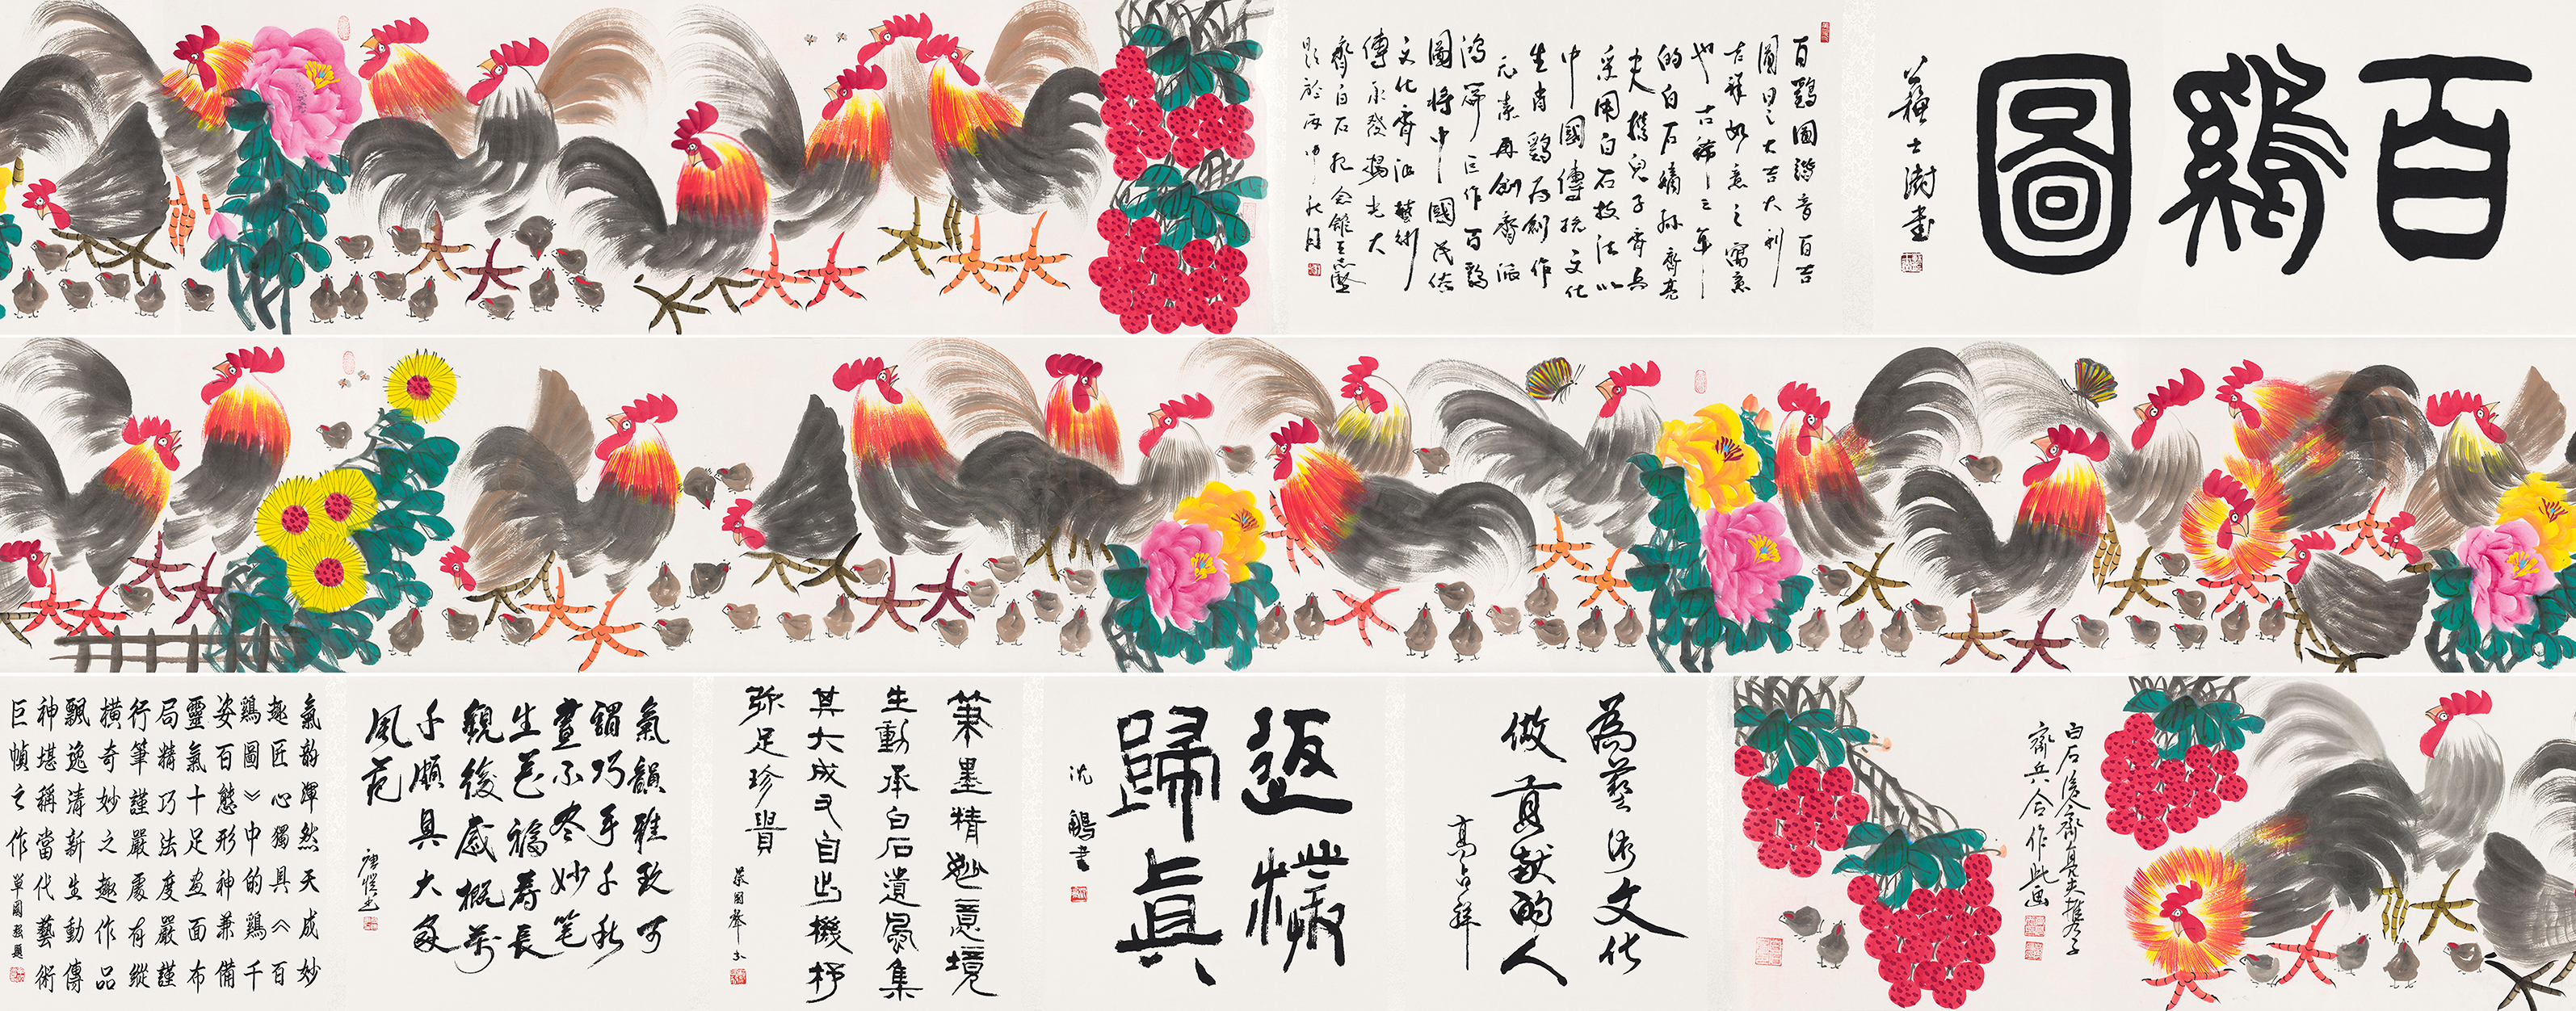 百鷄圖
蘇士澍書
百鷄圖諧音百吉
圖曰之大吉大利
吉祥如意之寓意
也古稀之年
的白石嫡孫齊亮
夫攜兒子齊兵
采用白石技法以
中國傳統文化
生肖鷄為創作
元素再創齊派
鴻篇巨作百鷄
圖將中國民俗
文化齊派藝術
傳承發揚光大
齊白石紀念館王志堅
題於丙申秋月
白石後人齊亮夫攜子
齊兵合作此畫
為藝術文化
做貢獻的人
高占祥
返樸
歸真
沈鵬書
筆墨精妙意境
生動承白石遺風集
其大成又自出機杼
弥足珍貴
蔡國聲书
氣韻雅致可
謂巧手千秋
畫不尽妙笔
生花福壽長
觀後感概萬
千頗具大家
風范
氣韵渾然天成妙
趣匠心獨具《百
鷄圖》中的鷄千
姿百態形神兼備
靈氣十足畫面布
局精巧法度嚴謹
行筆謹嚴處有縱
橫奇妙之趣作品
飄逸清新生動傳
神堪稱當代藝術
巨幀之作
單國强題